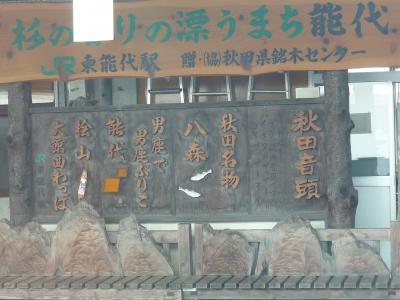 杉の りの漂うまち能代
JR東能代駅 贈・(協)秋田県銘木センター
秋田音頭
秋田名物
八森
男鹿で
男鹿ぶりこ
能代
桧山
大館曲わっぱ
JR